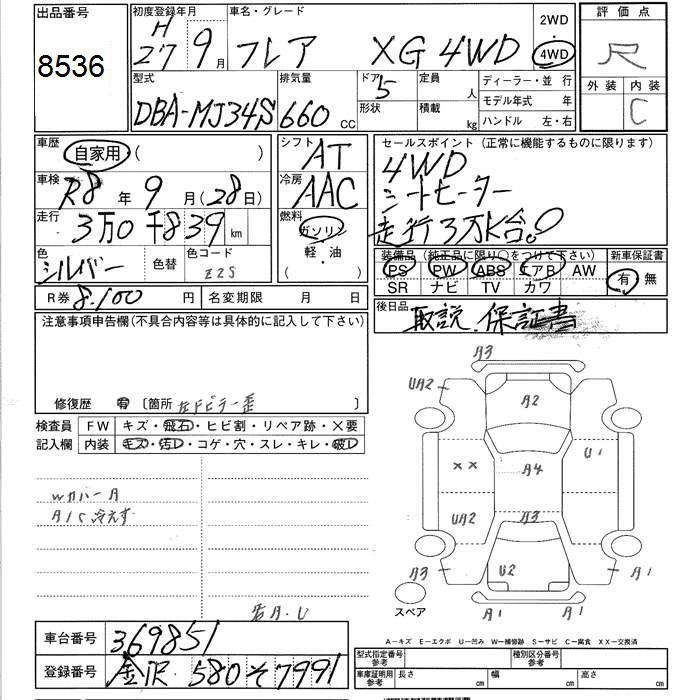 出品番号
8536
初度登録年月
H
27 9月
車名・グレード
フレア XG 4WD
2WD
・
4WD
評価点
R
外装 内装
C
型式
DBA-MJ34S
排気量
660 CC
ドア
5
形状
定員
人
積載
kg
ディーラー・並行
モデル年式 年
ハンドル 左・右
車歴
自家用 ( )
車検
R8年 9月(28日)
走行
3万0千839 km
色
シルバー
色替
色コード
Z2S
R券 8,100 円
名変期限 月 日
シフト
AT
冷房
AAC
燃料
ガソリン
軽・油
( )
セールスポイント(正常に機能するものに限ります)
4WD
シートヒーター
走行3万K台。
装備品(純正品に限り○をつけて下さい) 新車保証書
PS PW ABS エアB AW
SR ナビ TV カワ
有 無
後日品
取説、保証書
注意事項申告欄(不具合内容等は具体的に記入して下さい)
修復歴 有 〔箇所 左Fピラー歪 〕
検査員 FW キズ・飛石・ヒビ割・リペア跡・X要
記入欄 内装 キズ・汚レ・コゲ・穴・スレ・キレ・破レ
Wカバー A
A/C冷えず
A3
UA2
A2
XX
U1
A4
UA2
A3
A3
U2
A1
スペア
A1
A1
車台番号 369851
登録番号 金沢 580 そ 7991
A-キズ E-エクボ U-凹み W-補修跡 S-サビ C-腐食 XX-交換済
型式指定番号
参考
種別区分番号
参考
車庫証明用
参考
長さ cm
幅 cm
高さ cm